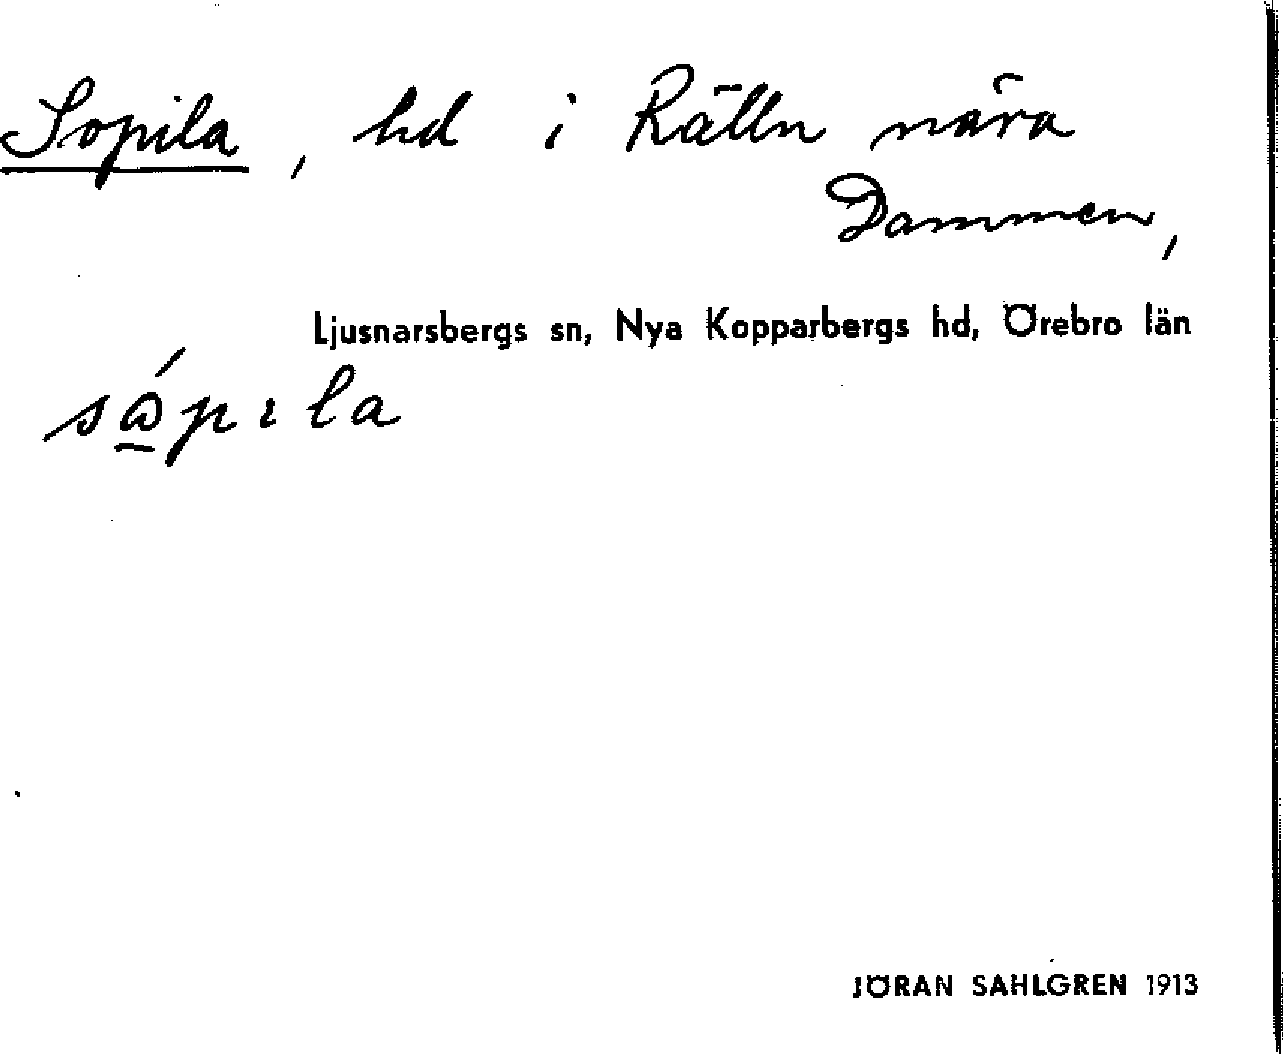 Sopila, hd i Rälln nära
Dammen,
Ljusnarsbergs sn, Nya Kopparbergs hd, Örebro län
JÖRAN SAHLGREN 1913